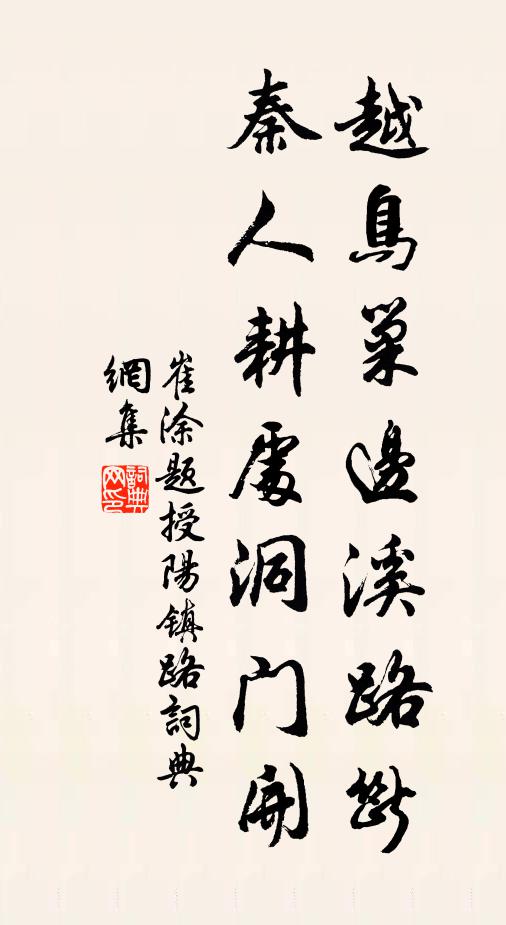 越鳥巢邊溪路斷
秦人耕處洞門開
崔涂題授陽鎮路詞典
網集
詞典
网印